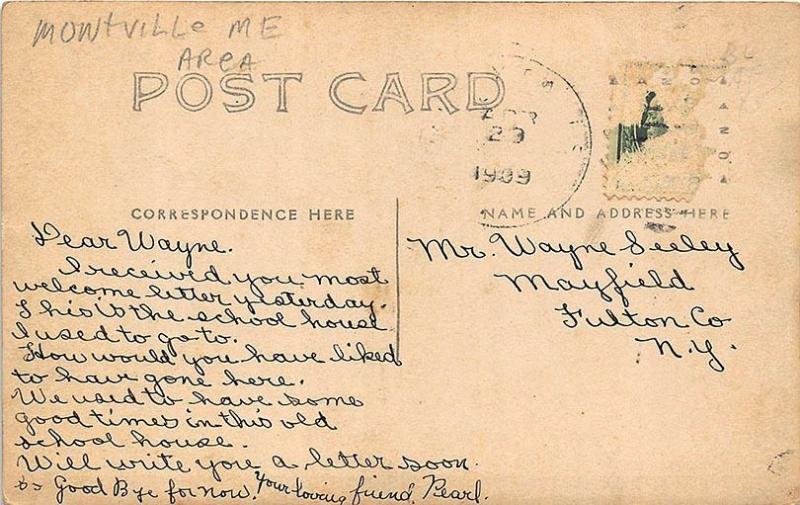 MONtVILLE ME
AREA
POST CARD
APR
29
1909
CORRESPONDENCE HERE
NAME AND ADDRESS HERE
Dear Wayne.
I received you most
welcome letter yesterday.
This is the school house
I used to go to.
How would you have liked
to have gone here.
We used to have some
good times in this old
school house.
Will write you a letter soon.
so Good Bye for now. Your loving friend, Pearl.
Mr. Wayne Seeley
Mayfield
Fulton Co
N.Y.